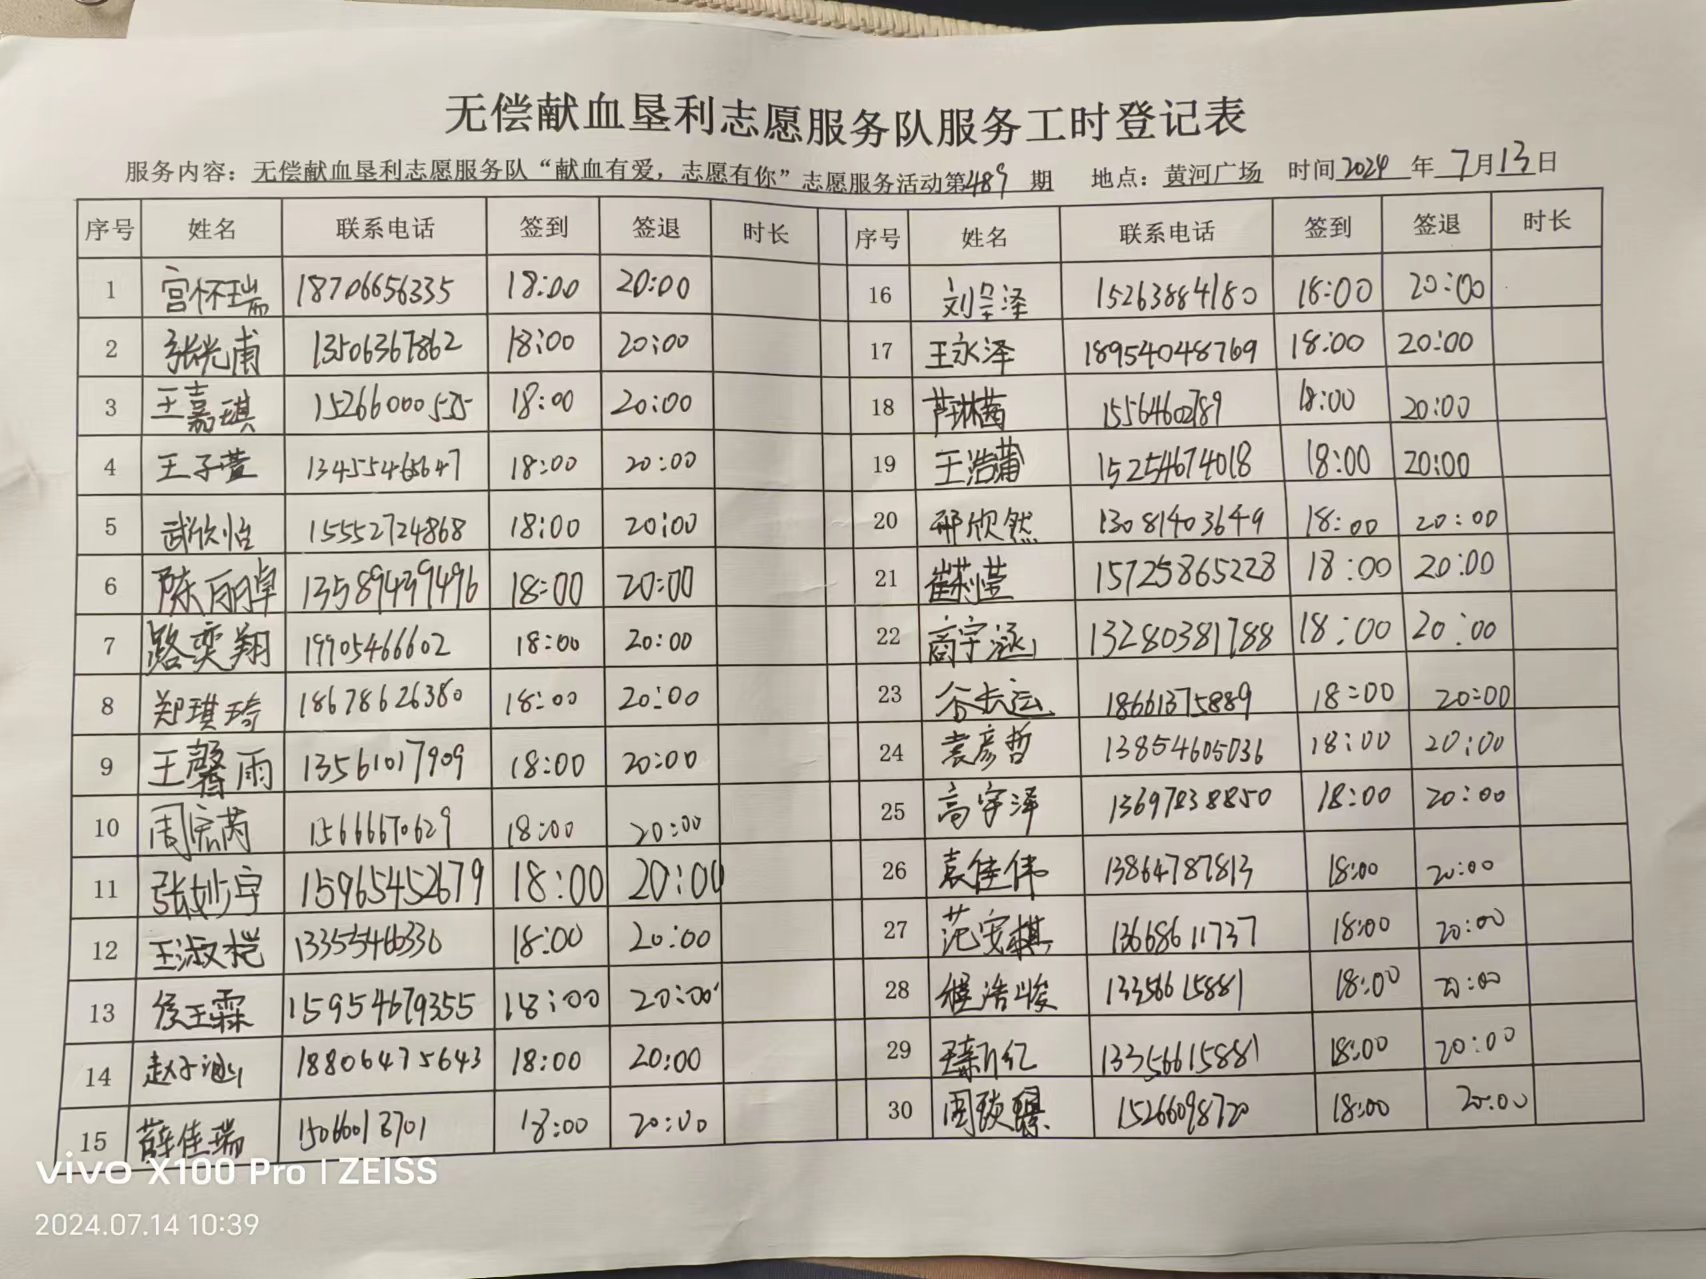 无偿献血垦利志愿服务队服务工时登记表
服务内容：无偿献血垦利志愿服务队“献血有爱，志愿有你”志愿服务活动第489期 地点：黄河广场 时间2024年7月13日
序号 姓名 联系电话 签到 签退 时长 序号 姓名 联系电话 签到 签退 时长
1 宫怀瑞 18706656335 18:00 20:00 16 刘 泽 15263884180 18:00 20:00
2 张光甫 13506367862 18:00 20:00 17 王永泽 18954048769 18:00 20:00
3 王嘉琪 15266000525 18:00 20:00 18 芦琳茜 15564602789 18:00 20:00
4 王子萱 13455465647 18:00 20:00 19 王浩蒲 15254674018 18:00 20:00
5 武欣怡 15552724868 18:00 20:00 20 邢欣然 13081403649 18:00 20:00
6 陈丽卓 13589439496 18:00 20:00 21 崔莉莹 15725865228 18:00 20:00
7 路奕翔 19905466602 18:00 20:00 22 商宇涵 13280381788 18:00 20:00
8 郑琪琦 18678626380 18:00 20:00 23 谷长运 18661375889 18:00 20:00
9 王馨雨 13561017909 18:00 20:00 24 袁彦哲 13854605036 18:00 20:00
10 周宏芮 15666670629 18:00 20:00 25 高宇泽 13697838850 18:00 20:00
11 张妙宇 15965452679 18:00 20:00 26 袁佳伟 13864787813 18:00 20:00
12 王淑桤 13355460330 18:00 20:00 27 范安棋 13668611737 18:00 20:00
13 侯玉霖 15954679355 18:00 20:00 28 浩峻 13356615881 18:00 20:00
14 赵子涵 18806475643 18:00 20:00 29 13356615881 18:00 20:00
15 薛佳瑞 15066013701 18:00 20:00 30 周 15266098720 18:00 20:00
vivo X100 Pro | ZEISS
2024.07.14 10:39